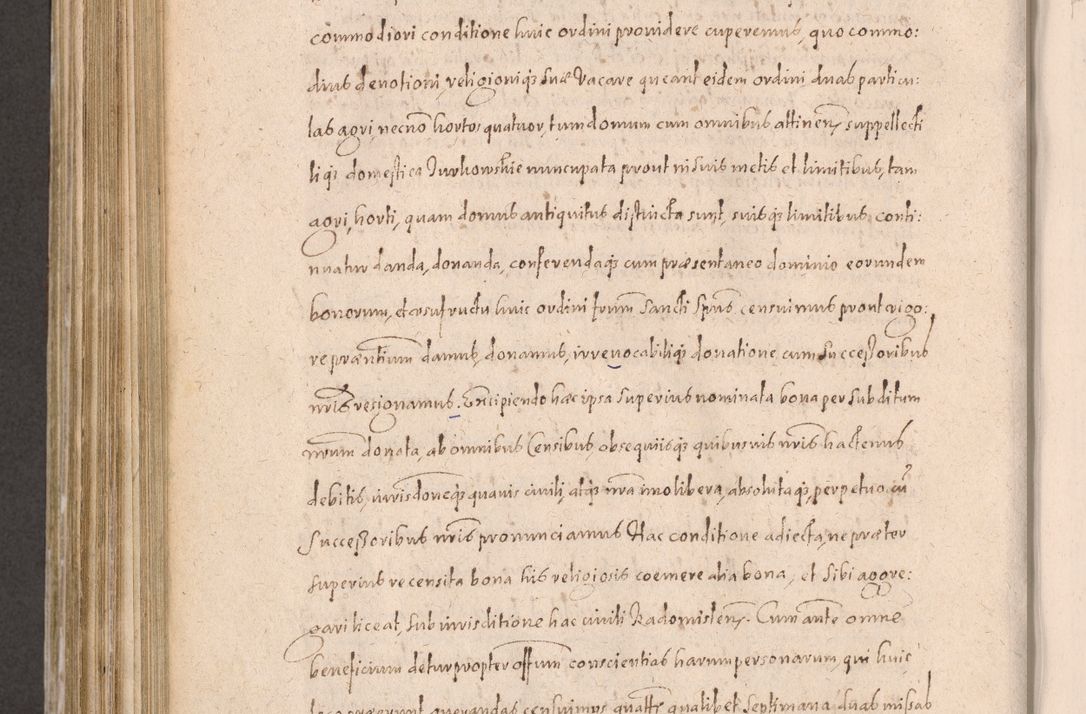 commodiori conditione huic ordini providere cuperemus, quo commo:
dius devotioni, religioniq3 suæ vacare queant eidem ordini duas particu:
las agri, necnõ hortos quatuor, tum domum cum omnibus attinen, suppellecti
liq3 domestica Jurkowskie nuncupata prout in suis metis et limitibus, tam
agri, horti, quam domus antiquitus distincta sunt, suisq3 limitibus conti:
nuatur danda, donanda, conferendaq3 cum præsentaneo dominio eorundem
bonorum, et usufructu huic ordini frum Sancti Spûs censuimus prout vigo:
re præntium damus, donamus, irrevocabiliq3 donatione cum Successoribus
nris resignamus. Excipiendo hæc ipsa superius nominata bona per subditum
nrum donata, ab omnibus Censibus obsequiisq3 quibusvis nris hactenus
debitis, jurisdoneq3 quavis civili, atq3 nra imo libera, absolutaq3, perpetuo cũ
Successoribus nris pronunciamus Hac conditione adiecta, ne præter
superius recensita bona his religiosis coemere alia bona, et sibi aggre:
gari liceat, sub jurisditione hac civili Radomisten. Cum ante omne
beneficium detur propter offum conscientias harum personarum, qui huic
loco præerunt, onerandas censuimus quatts qualibet Septimana duas missas